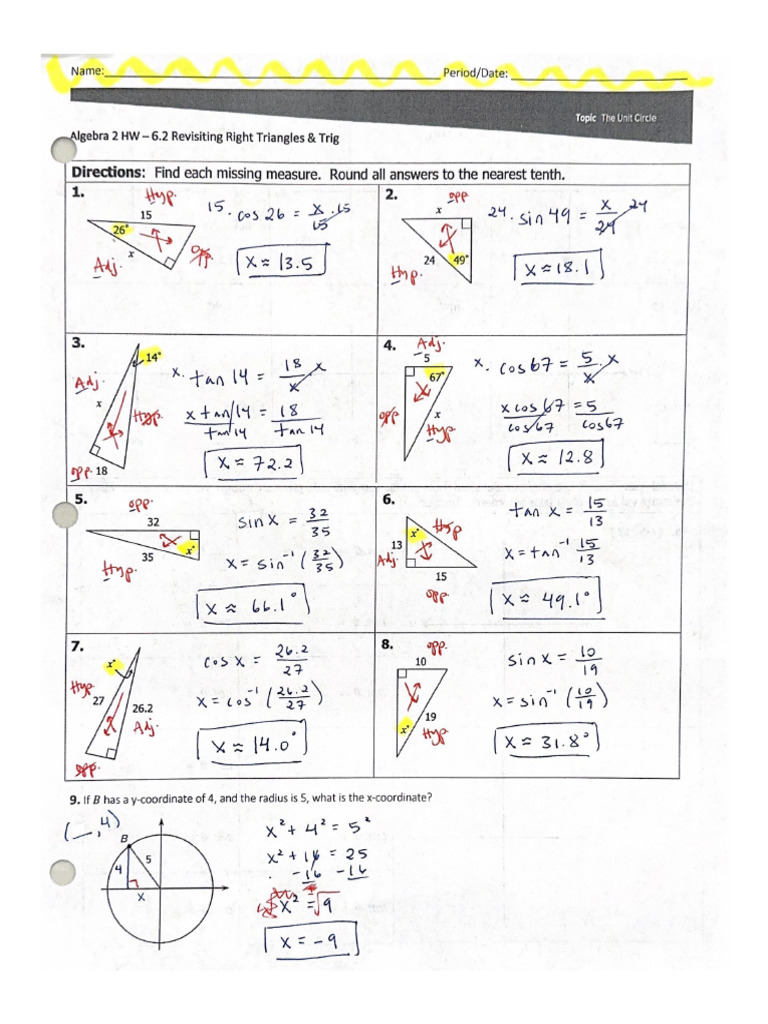 Name: Period/Date:
Topic The Unit Circle
Algebra 2 HW – 6.2 Revisiting Right Triangles & Trig
Directions: Find each missing measure. Round all answers to the nearest tenth.
1.
Hyp.
15
26°
x
Adj.
opp
15. cos 26 = x/15 .15
x ≈ 13.5
2.
opp
x
24
49°
Hyp.
24. sin 49 = x/24 24
x ≈ 18.1
3.
14°
Adj.
x
Hyp.
opp. 18
x. tan 14 = 18/x x
x tan 14/tan 14 = 18/tan 14
x ≈ 72.2
4.
Adj.
5
67°
opp
x
Hyp.
x. cos 67 = 5/x .x
x cos 67/cos 67 = 5/cos 67
x ≈ 12.8
5.
opp.
32
35
x°
Hyp.
sin x = 32/35
x = sin⁻¹ (32/35)
x ≈ 66.1°
6.
x°
Hyp
13
Adj.
15
opp.
tan x = 15/13
x = tan⁻¹ 15/13
x ≈ 49.1°
7.
x°
Hyp
27
26.2
Adj.
opp.
cos x = 26.2/27
x = cos⁻¹ (26.2/27)
x ≈ 14.0°
8.
opp.
10
19
x°
Hyp.
sin x = 10/19
x = sin⁻¹ (10/19)
x ≈ 31.8°
9. If B has a y-coordinate of 4, and the radius is 5, what is the x-coordinate?
(_, 4)
B
5
4
x
x² + 4² = 5²
x² + 16 = 25
-16 -16
x² = √9
x = -9